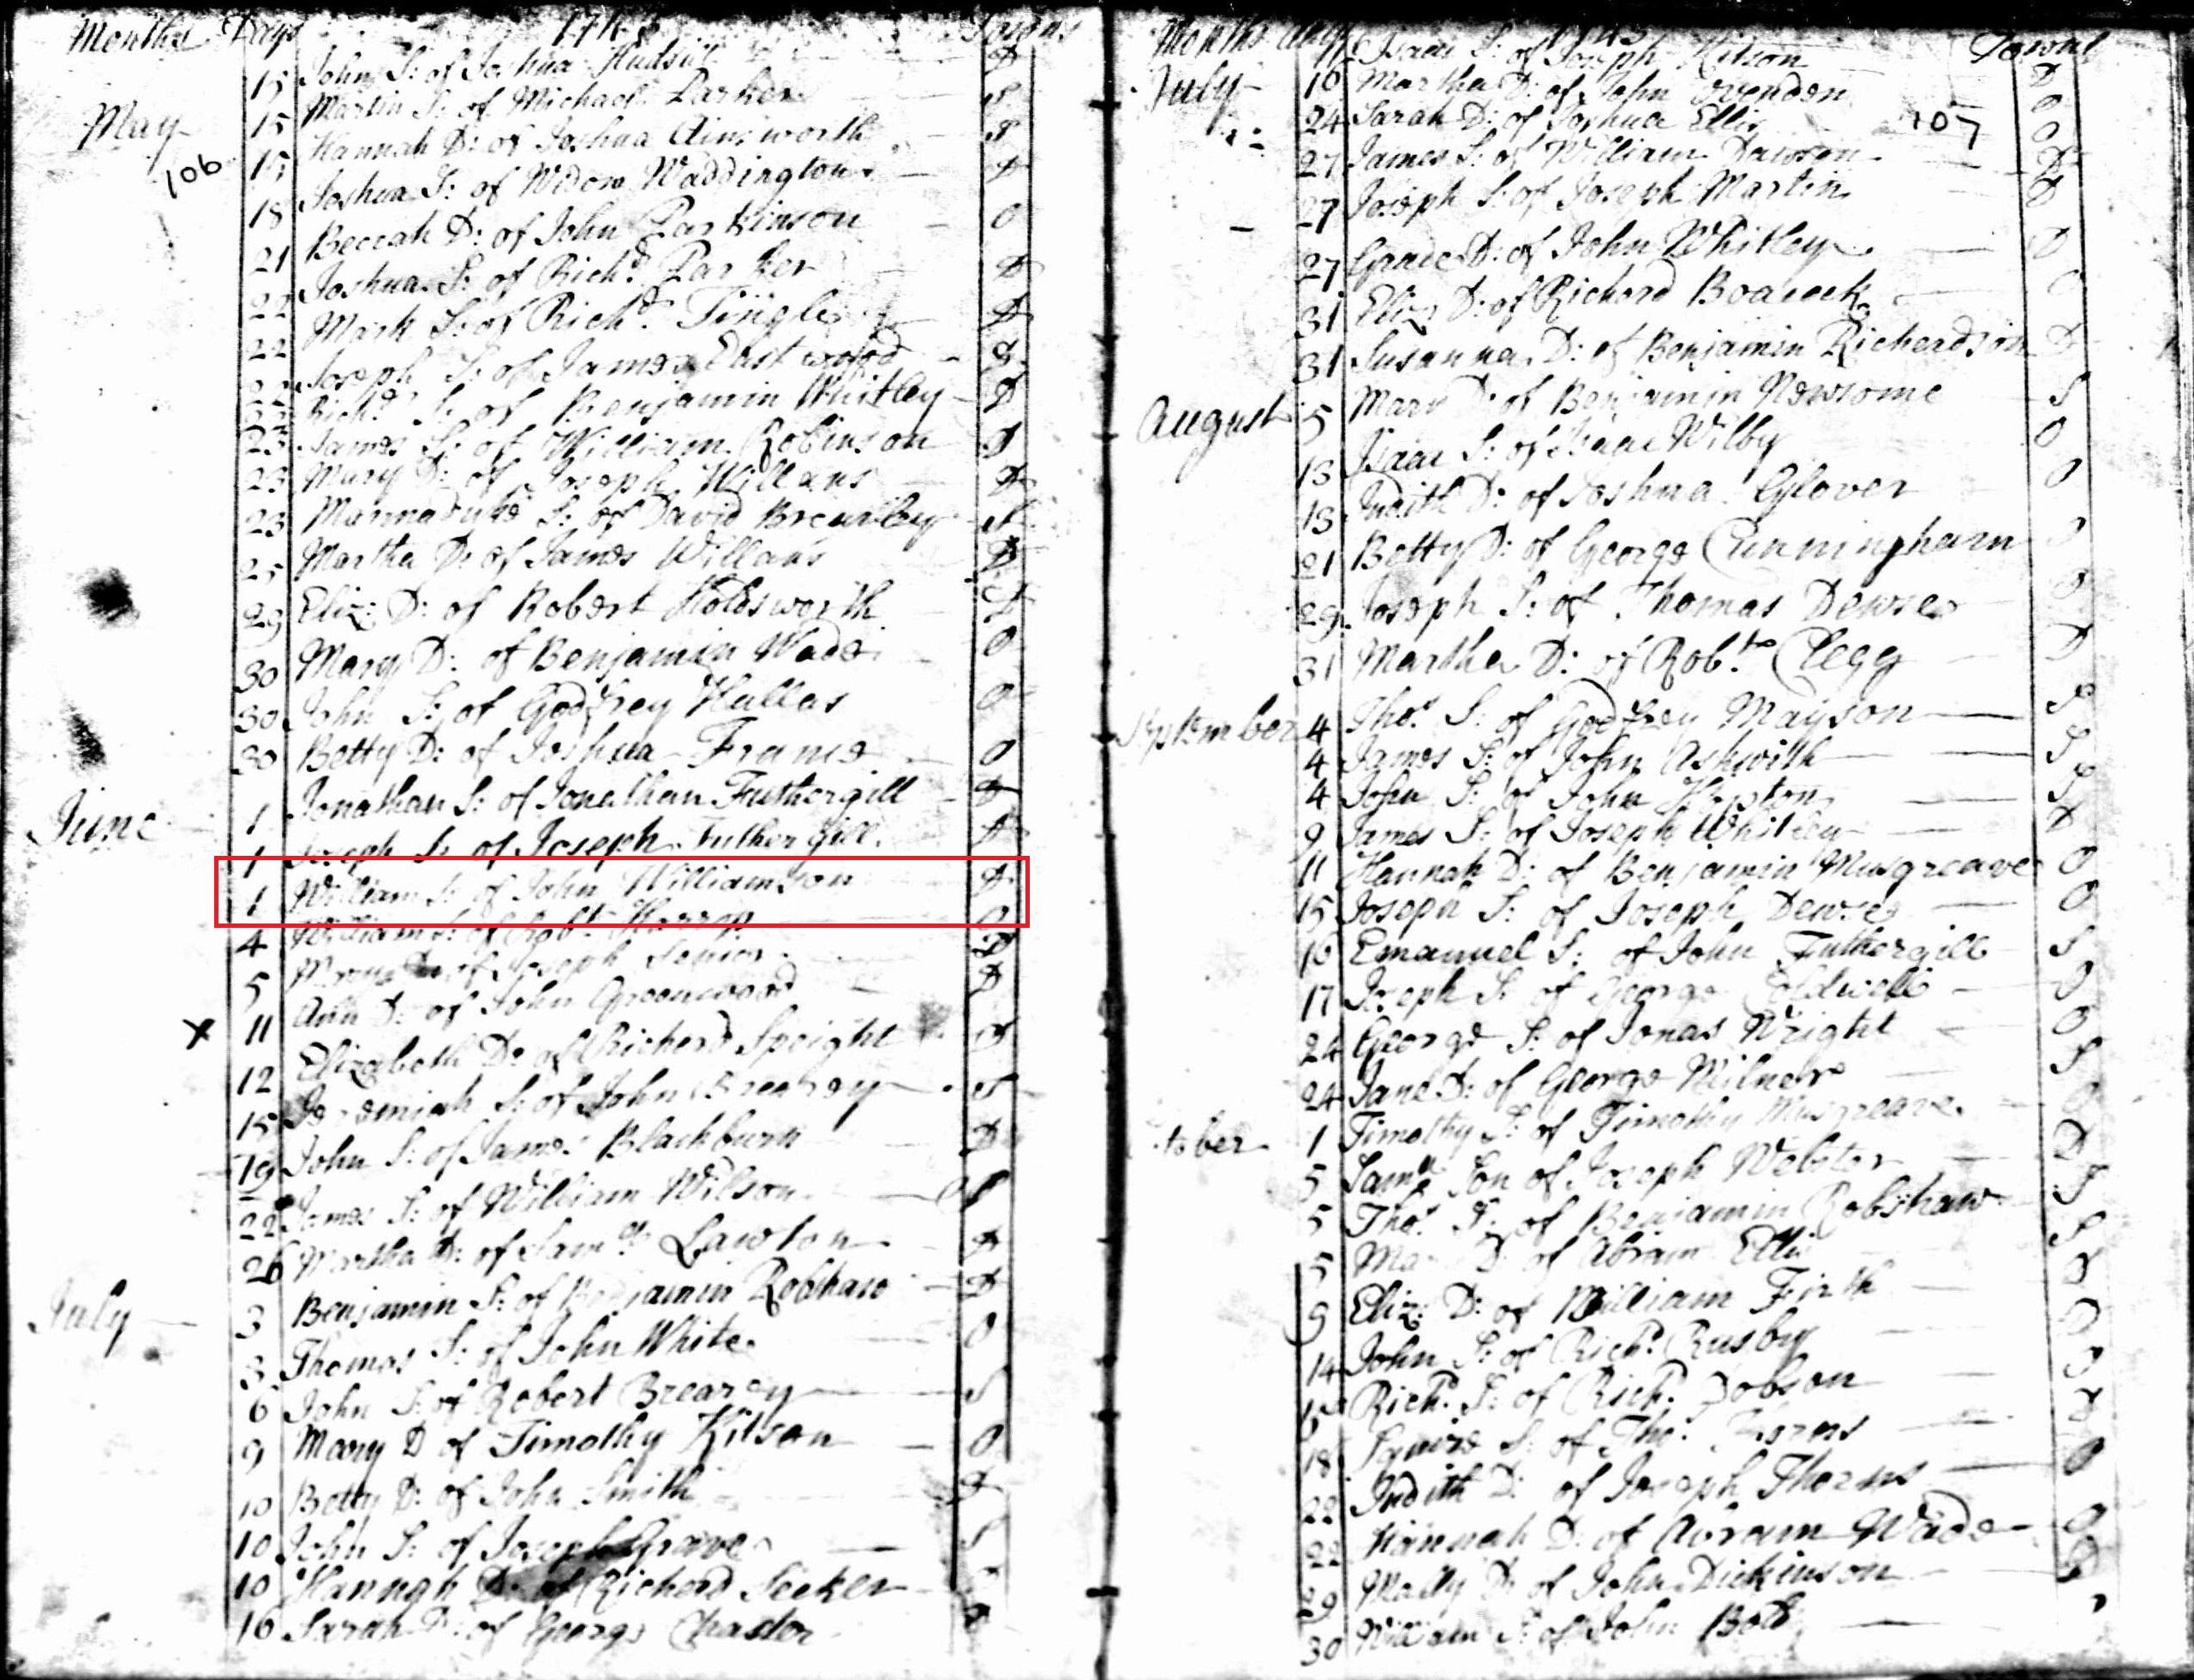 Months Days 1743 Towns
15 John S: of Joshua Hudson D
May 15 Martin S: of Michael Parker S
15 Hannah D: of Joshua Ainsworth S
106
18 Joshua S: of Widow Waddington D
21 Beccah D: of John Parkinson O
22 Joshua S: of Richd. Parker D
22 Mark S: of Richd. Tingle D
22 Joseph S: of James Eastwood S
Richd. S: of Benjamin Whitley D
23 James S: of William Robinson S
23 Mary D: of Joseph Willans D
23 Marmaduke S: of David Brearley S
25 Martha D: of James Willans D
29 Eliz: D: of Robert Holdsworth D
30 Mary D: of Benjamin Wade O
30 John S: of Godfrey Hallas O
30 Betty D: of Joshua France O
June 1 Jonathan S: of Jonathan Futhergill D
1 Joseph S: of Joseph Futhergill D
1 William S: of John Williamson D
4 William S: of Robt. Harrop O
5 D: of Joseph Senior D
11 Ann D: of John Greenwood D
x
12 Elizabeth D: of Richard Speight
15 Jeremiah S: of John Brearey S
19 John S: of James Blackburn D
22 James S: of William Wilson S
26 Martha D: of Saml. Lawton D
July 3 Benjamin S: of Benjamin Robshaw D
3 Thomas S: of John White O
6 John S: of Robert Brearey S
9 Mary D of Timothy Kitson O
10 Betty D: of John Smith D
10 John S: of Joseph Graves S
10 Hannah D: of Richard Seeker
16 Sarah D: of George Chaster
Months Days 1743 Towns
Isaac S: of Joseph Kitson
July 16 Martha D: of John Ovendon D
24 Sarah D: of Joshua Ellis O
107
27 James S: of William Dawson D
27 Joseph S: of Joseph Martin D
27 Grace D: of John Whitley D
31 Eliz D: of Richard Boocock
31 Susanna D: of Benjamin Richardson D
August 5 Mary D: of Benjamin Newsome S
13 Isaac S: of Isaac Wilby O
13 Judith D: of Joshua Glover O
21 Betty D: of George Cunningham
29 Joseph S: of Thomas Dewse
31 Martha D: of Robt. Clegg D
September 4 Thos. S: of Godfrey Mayson S
4 James S: of John Askwith S
4 John S: of John S
9 James S: of Joseph Whitley D
11 Hannah D: of Benjamin Musgreave O
15 Joseph S: of Joseph Dewse O
16 Emanuel S: of John Futhergill S
17 Joseph S: of George Coldwell O
24 George S: of Jonas Wright O
24 Jane D: of George Milner S
tober 1 Timothy S: of Timothy Musgreave
5 Saml. Son of Joseph Webster D
5 Thos. S: of Benjamin Robshaw S
5 D of Abram Ellis S
9 Eliz: D: of William Firth
14 John S: of Richd. Rusby
Richd. S: of Richd. Dobson O
18 Squire S: of Thos. Thorns
22 Judith D: of Joseph Thorns O
22 Hannah D: of Abram Wade O
29 Mally D: of John Dickinson D
30 William S: of John